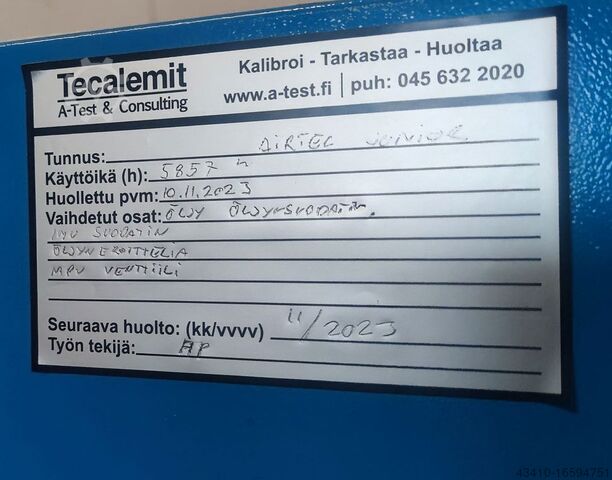 Tecalemit
A-Test & Consulting
Kalibroi - Tarkastaa - Huoltaa
www.a-test.fi | puh: 045 632 2020
Tunnus: AIRTEC JUNIOR
Käyttöikä (h): 5857 h
Huollettu pvm: 10.11.2023
Vaihdetut osat: ÖLJY ÖLJYNSUODATIN.
IMU SUODATIN
ÖLJYNEROITTELIA
MPV VENTTIILI
Seuraava huolto: (kk/vvvv) 11/2023
Työn tekijä: AP
43410-16594751